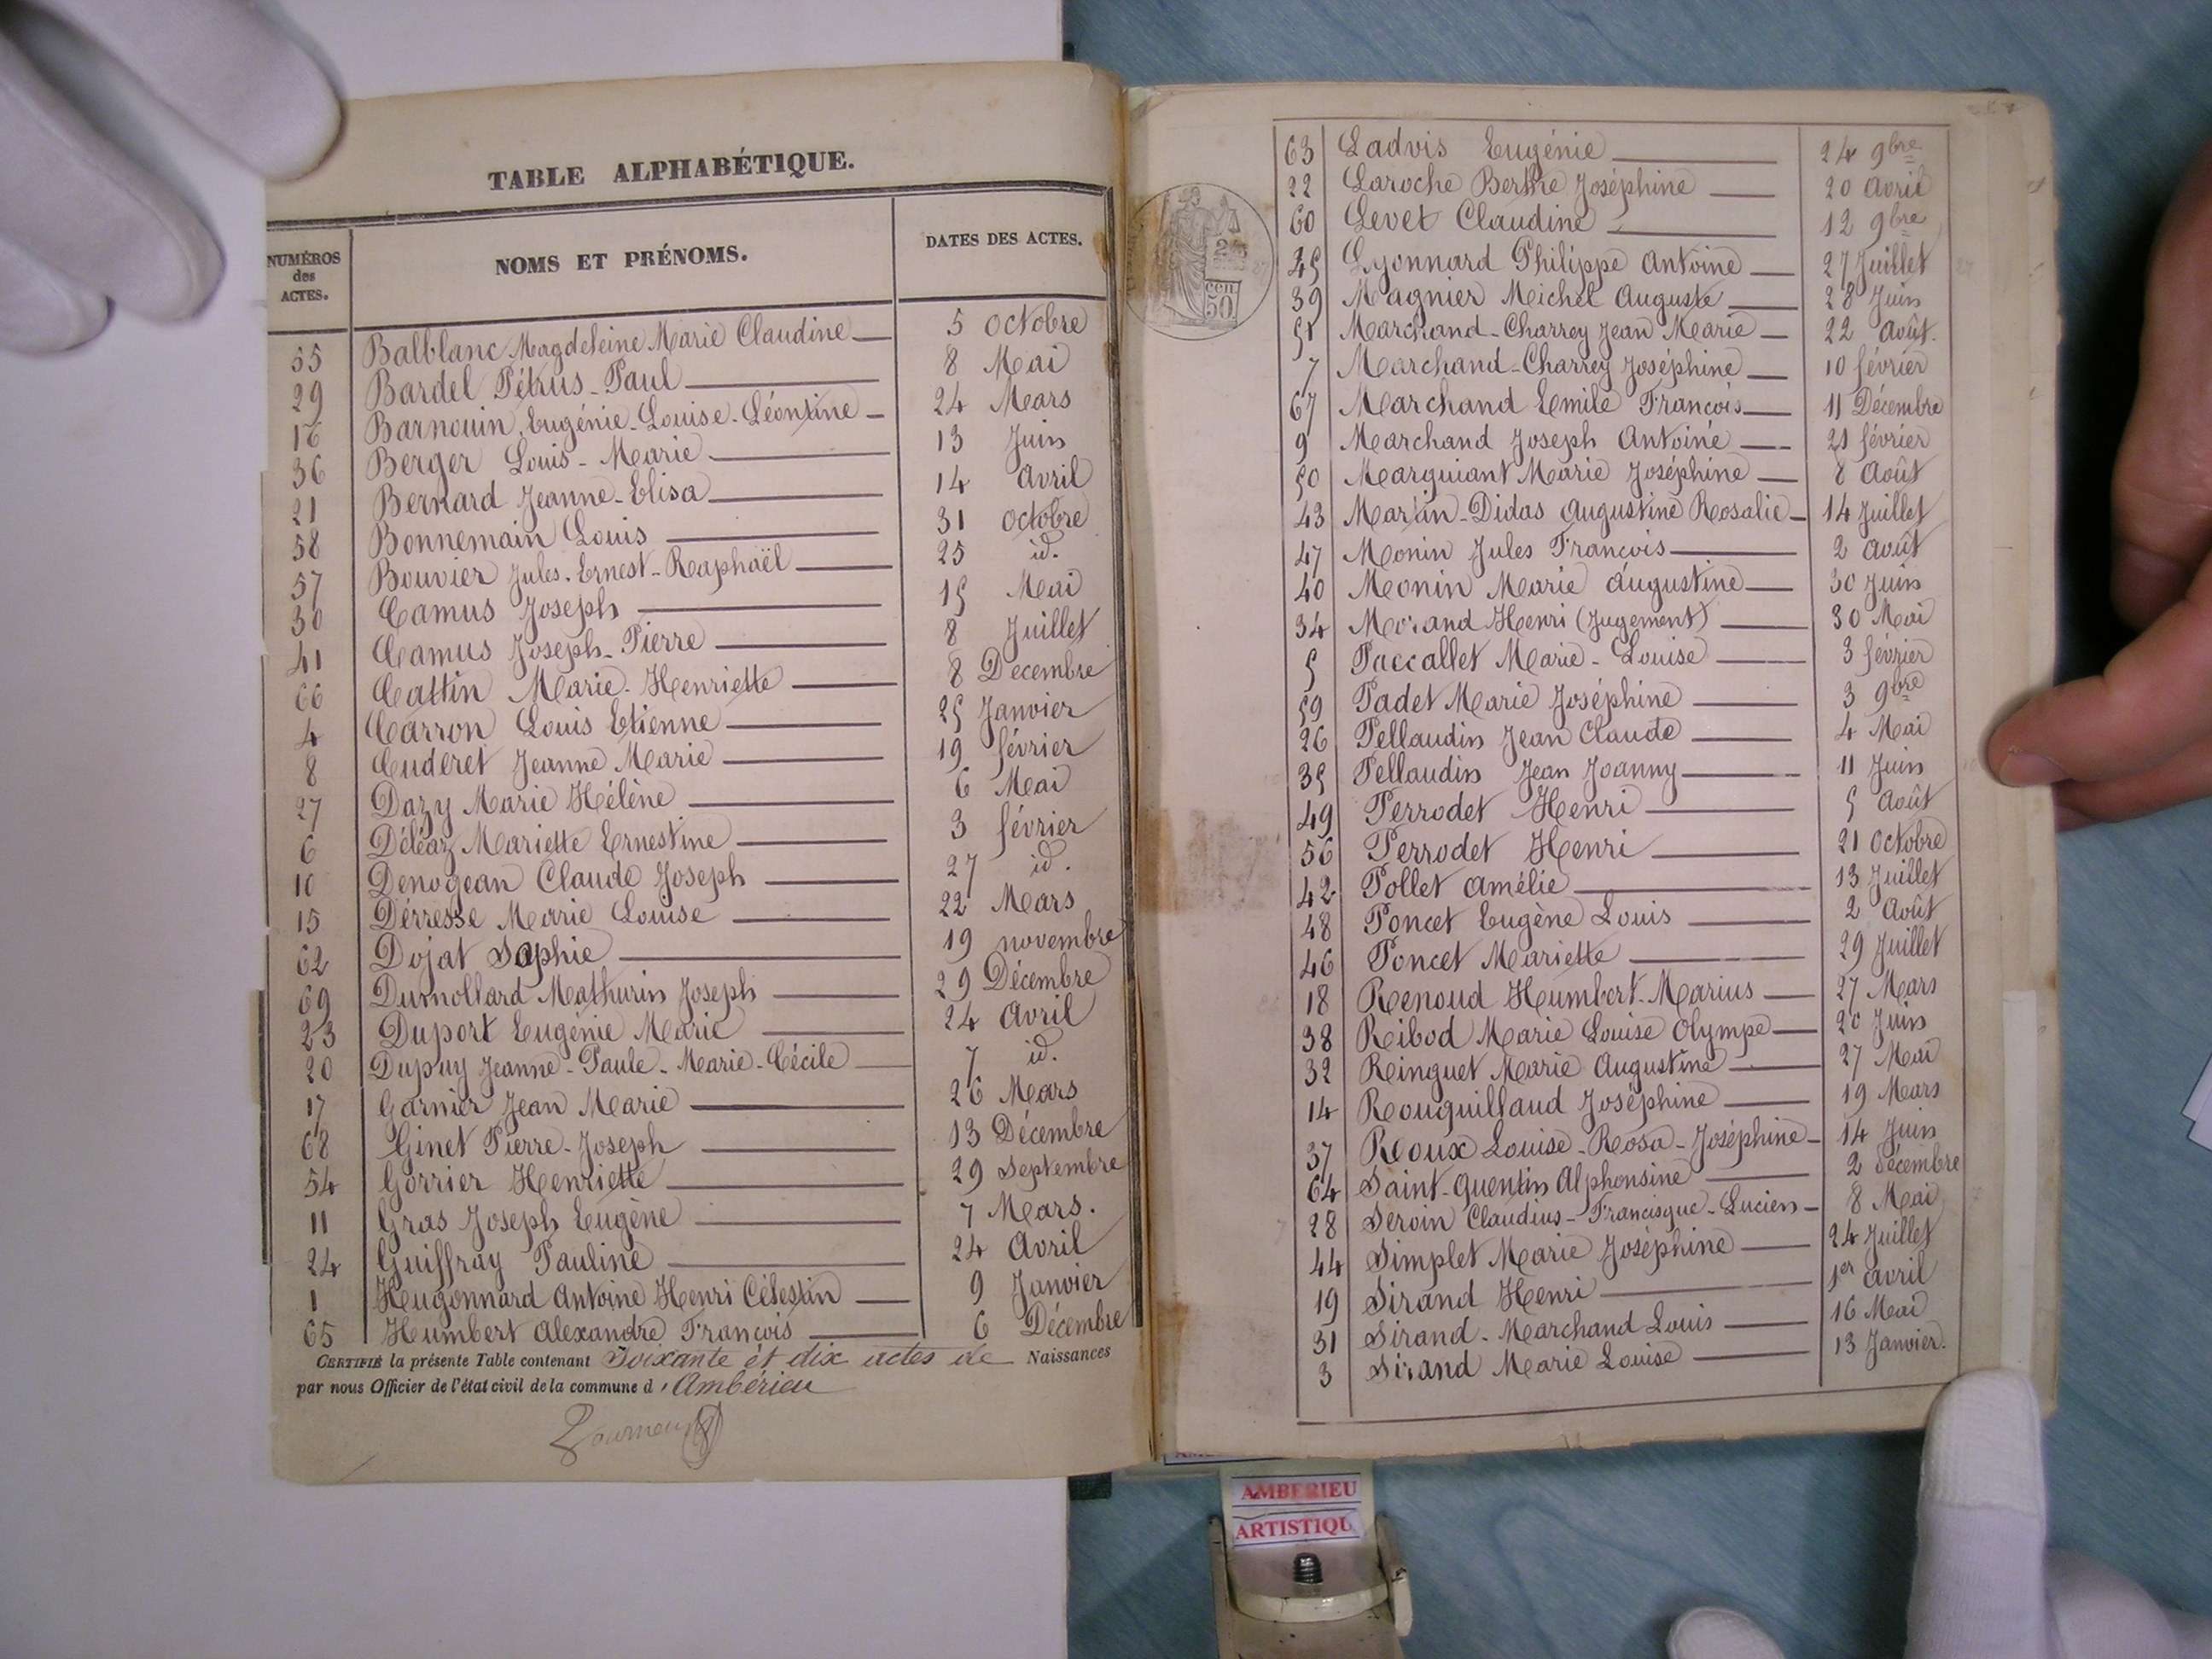 TABLE ALPHABÉTIQUE.
NUMÉROS des ACTES. NOMS ET PRÉNOMS. DATES DES ACTES.
55 Balblanc Magdeleine Marie Claudine 5 Octobre
29 Bardel Pétrus-Paul 8 Mai
16 Barnouin, Eugénie-Louise-Léontine 24 Mars
36 Berger Louis-Marie 13 Juin
21 Bernard Jeanne-Elisa 14 Avril
58 Bonnemain Louis 31 Octobre
57 Bouvier Jules-Ernest-Raphaël 25 id.
30 Camus Joseph 15 Mai
41 Camus Joseph-Pierre 8 Juillet
66 Cattin Marie-Henriette 8 Décembre
4 Carron Louis Etienne 25 Janvier
8 Cuderet Jeanne Marie 19 février
27 Dazy Marie Hélène 6 Mai
6 Déléaz Mariette Ernestine 3 février
10 Denogean Claude Joseph 27 id.
15 Dérresse Marie Louise 22 Mars
62 Dojat Sophie 19 novembre
69 Dumollard Mathurin Joseph 29 Décembre
23 Duport Eugénie Marie 24 Avril
20 Dupuy Jeanne-Paule-Marie-Cécile 7 id.
17 Garnier Jean Marie 26 Mars
68 Ginet Pierre-Joseph 13 Décembre
54 Gorrier Henriette 29 Septembre
11 Gras Joseph Eugène 7 Mars.
24 Guiffray Pauline 24 Avril
1 Hugonnard Antoine Henri Célestin 9 Janvier
65 Humbert Alexandre François 6 Décembre
CERTIFIÉ la présente Table contenant Soixante et dix actes de Naissances
par nous Officier de l'état civil de la commune d'Ambérieu
63 Ladvis Eugénie 24 9bre
22 Laroche Berthe Joséphine 20 Avril
60 Levet Claudine 12 9bre
45 Lyonnard Philippe Antoine 27 Juillet
39 Magnier Michel Auguste 28 Juin
51 Marchand-Charrey Jean Marie 22 Août.
7 Marchand-Charrey Joséphine 10 février
67 Marchand Emile François 11 Décembre
9 Marchand Joseph Antoine 21 février
50 Marguiant Marie Joséphine 8 Août
43 Martin-Didas Augustine Rosalie 14 Juillet
47 Monin Jules François 2 Août
40 Monin Marie Augustine 30 Juin
34 Morand Henri (Jugement) 30 Mai
5 Paccallet Marie-Louise 3 février
59 Padet Marie Joséphine 3 9bre
26 Pellaudin Jean Claude 4 Mai
35 Pellaudin Jean Joanny 11 Juin
49 Perrodet Henri 5 Août
56 Perrodet Henri 21 Octobre
42 Pollet Amélie 13 Juillet
48 Poncet Eugène Louis 2 Août
46 Poncet Mariette 29 Juillet
18 Renoud Humbert-Marius 27 Mars
38 Ribod Marie Louise Olympe 20 Juin
32 Ringuet Marie Augustine 27 Mai
14 Rouguillaud Joséphine 19 Mars
37 Roux Louise-Rosa-Joséphine 14 Juin
64 Saint-Quentin Alphonsine 2 Décembre
28 Servin Claudius-Francisque-Lucien 8 Mai
44 Simplet Marie Joséphine 24 Juillet
19 Sirand Henri 1er Avril
31 Sirand-Marchand Louis 16 Mai
3 Sirand Marie Louise 13 Janvier.
cen
50
AMBERIEU
ARTISTIQU